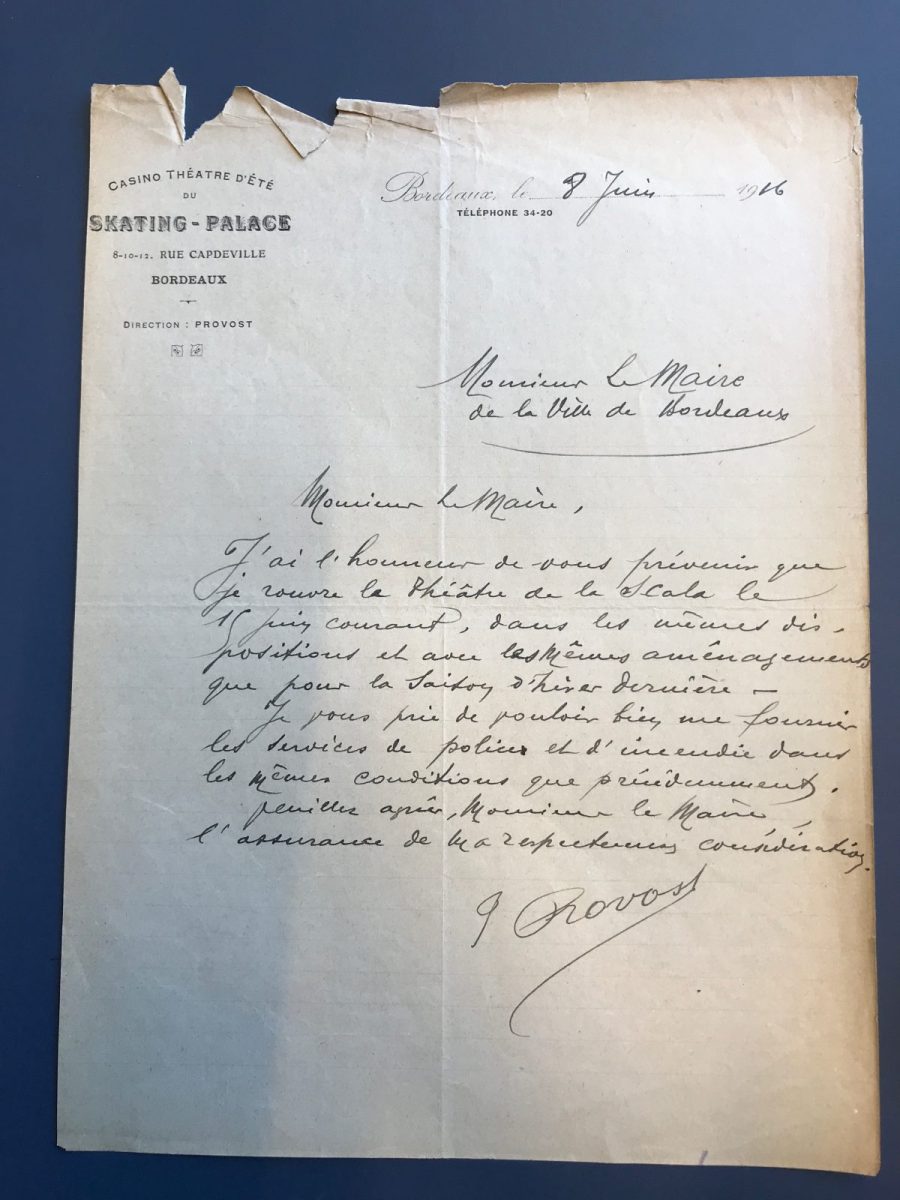 CASINO THÉATRE D'ÉTÉ
DU
SKATING-PALACE
8-10-12, RUE CAPDEVILLE
BORDEAUX
DIRECTION : PROVOST
Bordeaux, le 8 Juin 1916
TÉLÉPHONE 34-20
Monsieur Le Maire
de la Ville de Bordeaux
Monsieur Le Maire,
J'ai l'honneur de vous prévenir que
je rouvre la théâtre de la Scala le
15 juin courant, dans les mêmes dis-
positions et avec les mêmes aménagements
que pour la saison d'hiver dernière —
Je vous prie de vouloir bien me fournir
les services de police et d'incendie dans
les mêmes conditions que précédemment.
Veuillez agréer, Monsieur le Maire,
l'assurance de ma respectueuse considération.
Provost